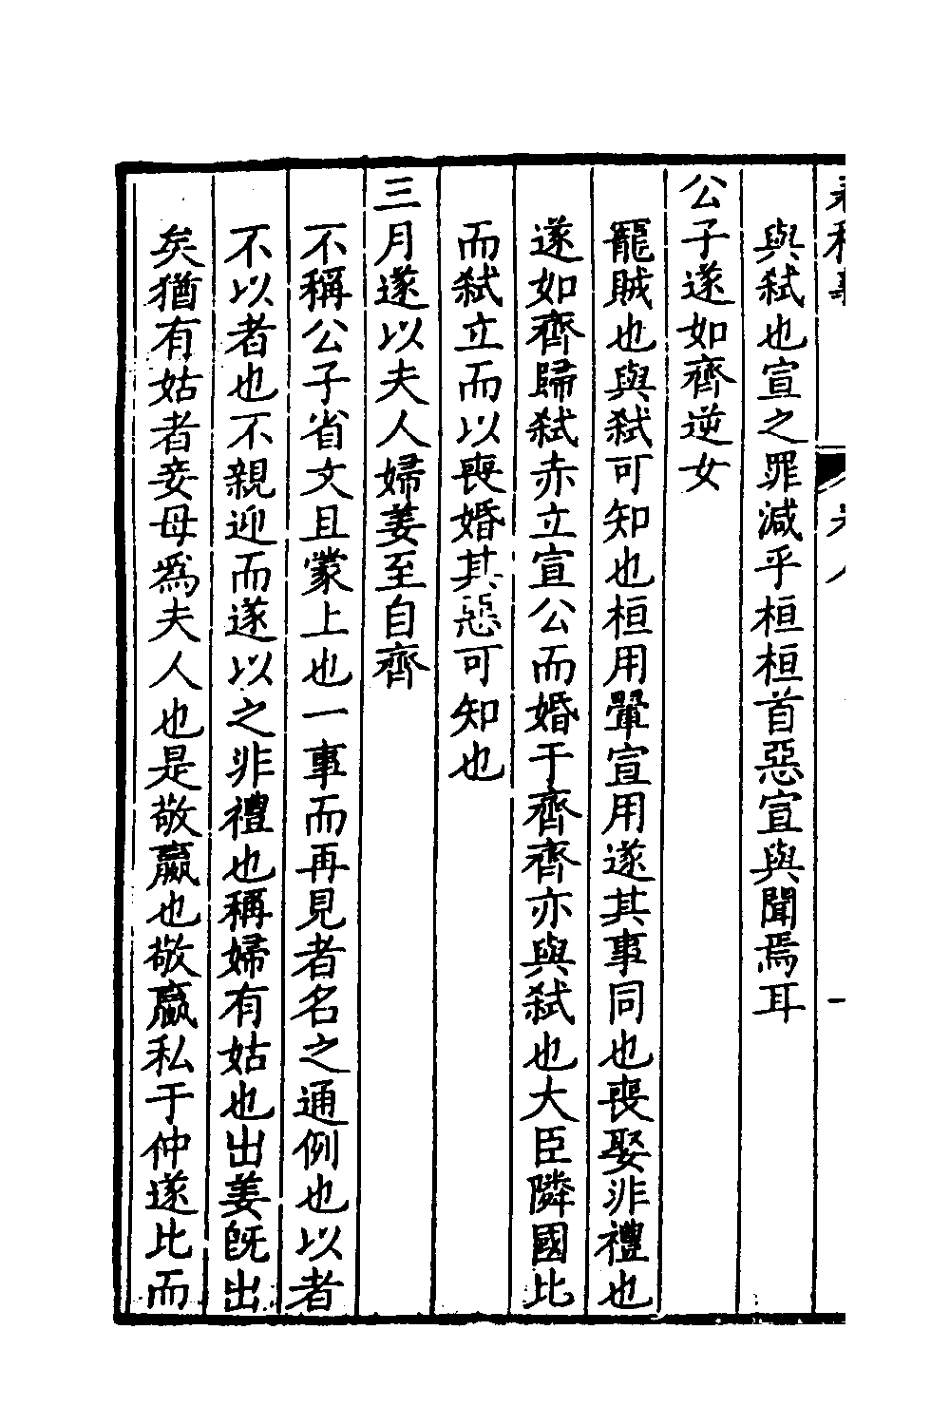 與弑也宣之罪減乎桓桓首惡宣與聞焉耳
公子遂如齊逆女
寵賊也與弑可知也桓用翬宣用遂其事同也喪娶非禮也
遂如齊歸弑赤立宣公而婚于齊齊亦與弑也大臣隣國比
而弑立而以喪婚其惡可知也
三月遂以夫人婦姜至自齊
不稱公子省文且蒙上也一事而再見者名之通例也以者
不以者也不親迎而遂以之非禮也稱婦有姑也出姜旣出
矣猶有姑者妾母爲夫人也是敬嬴也敬嬴私于仲遂比而